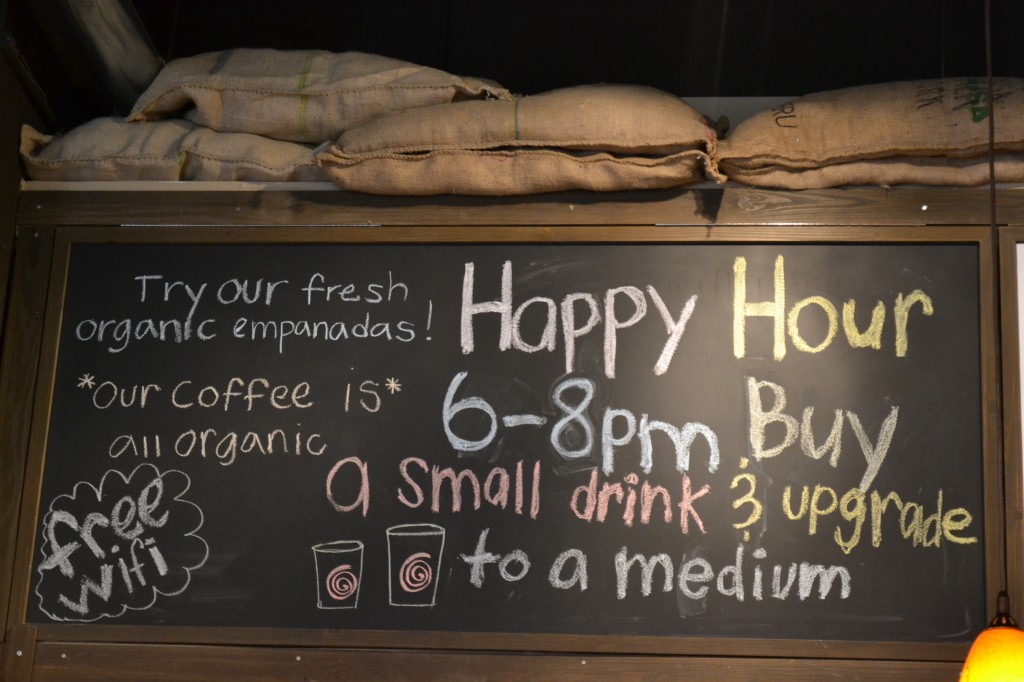 Try our fresh
organic empanadas!
*Our coffee is*
all organic
free
wifi
Happy Hour
6-8pm Buy
a small drink & upgrade
to a medium